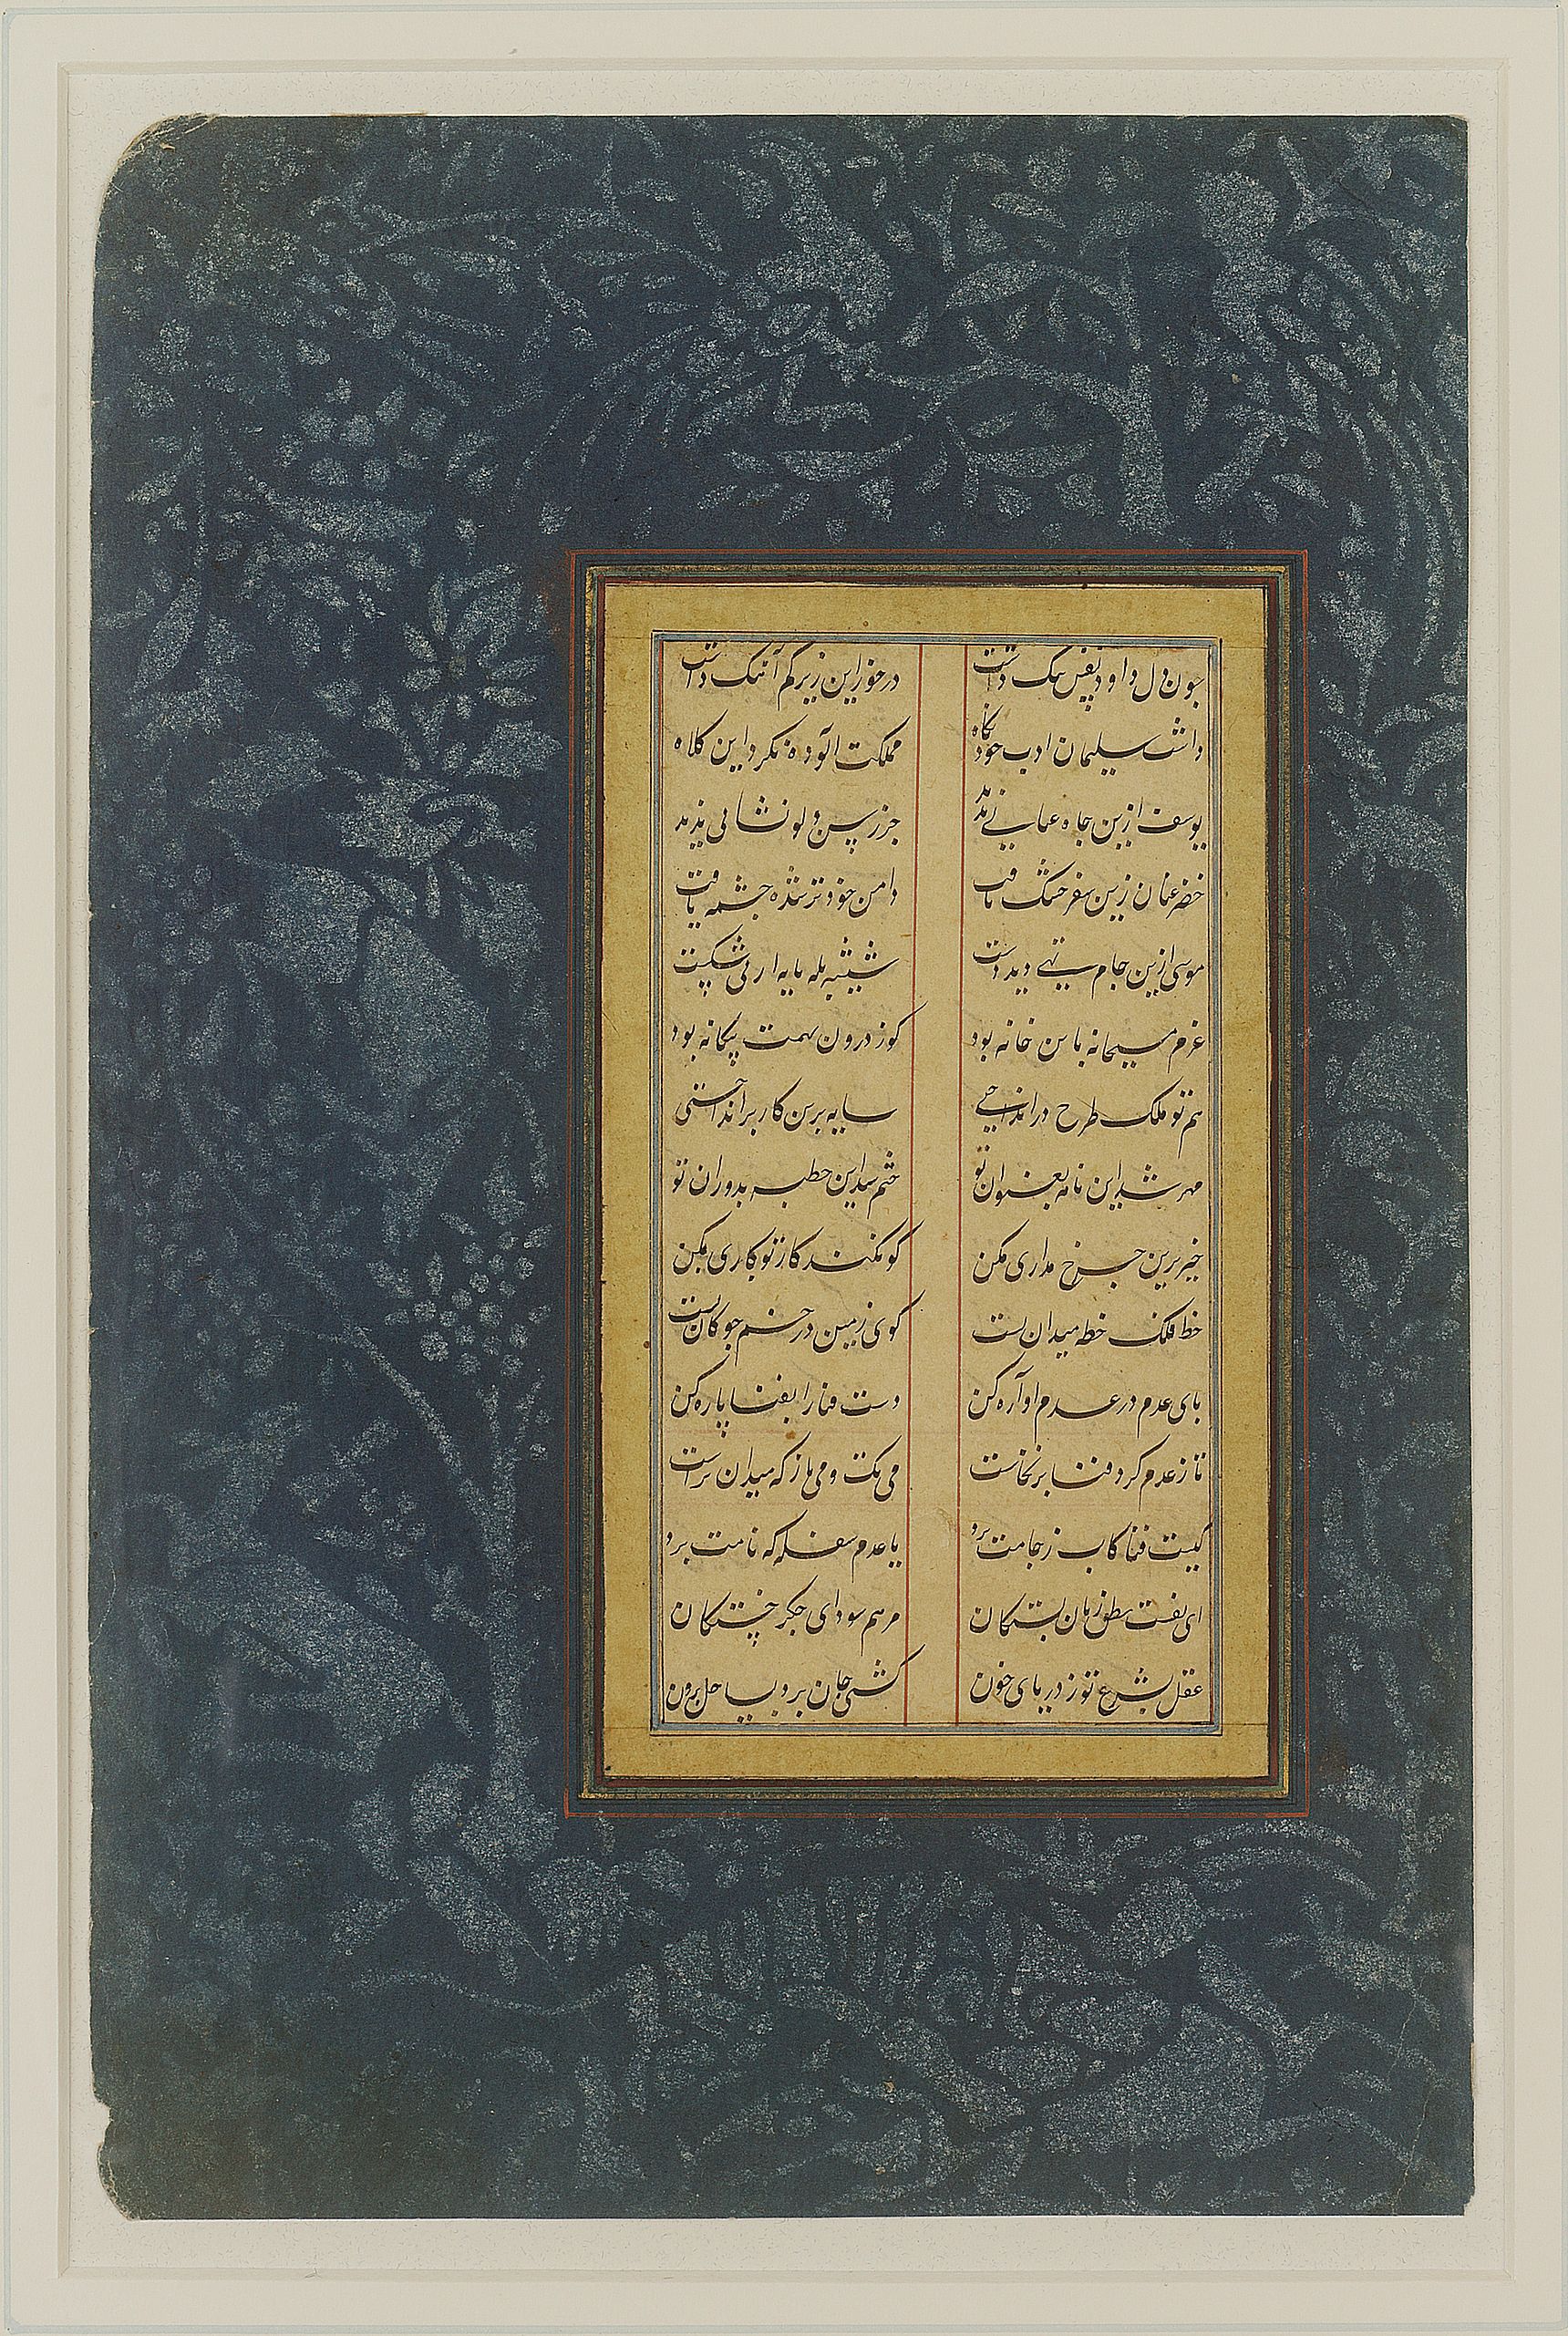 چون دل داود نفس تنگ داشت در خور این زیر بم آهنگ داشت
داشت سلیمان ادب خود نگاه مملکت آلوده نکرد این کلاه
یوسف ازین چاه عیانی ندید جز رسن و دلو نشانی ندید
خضر عنان زین سفر خشک تافت دامن خود تر شده چشمه یافت
موسی ازین جام تهی دید دست شیشه بکه پایه ارنی شکست
عزم مسیحا نه باین خانه بود کو ز درون همت بیگانه بود
هم تو فلک طرح در انداختی سایه برین کار بر انداختی
مهر شد این نامه بعنوان تو ختم شد این خطبه بدوران تو
خیز برین چرخ مداری بکن کو نکند کار تو کاری بکن
خط فلک خطه میدان تست گوی زمین در خم چوگان تست
پای عدم در عدم آواره کن دست فنا را بفنا پاره کن
تا ز عدم گرد فنا برنخاست می تک و می تاز که میدان تراست
کیست فنا کاب ز جامت برد یا عدم سفله که نامت برد
ای نفست نطق زبان بستگان مرهم سودای جگر خستگان
عقل بشرع تو ز دریای خون کشتی جان برد بساحل برون